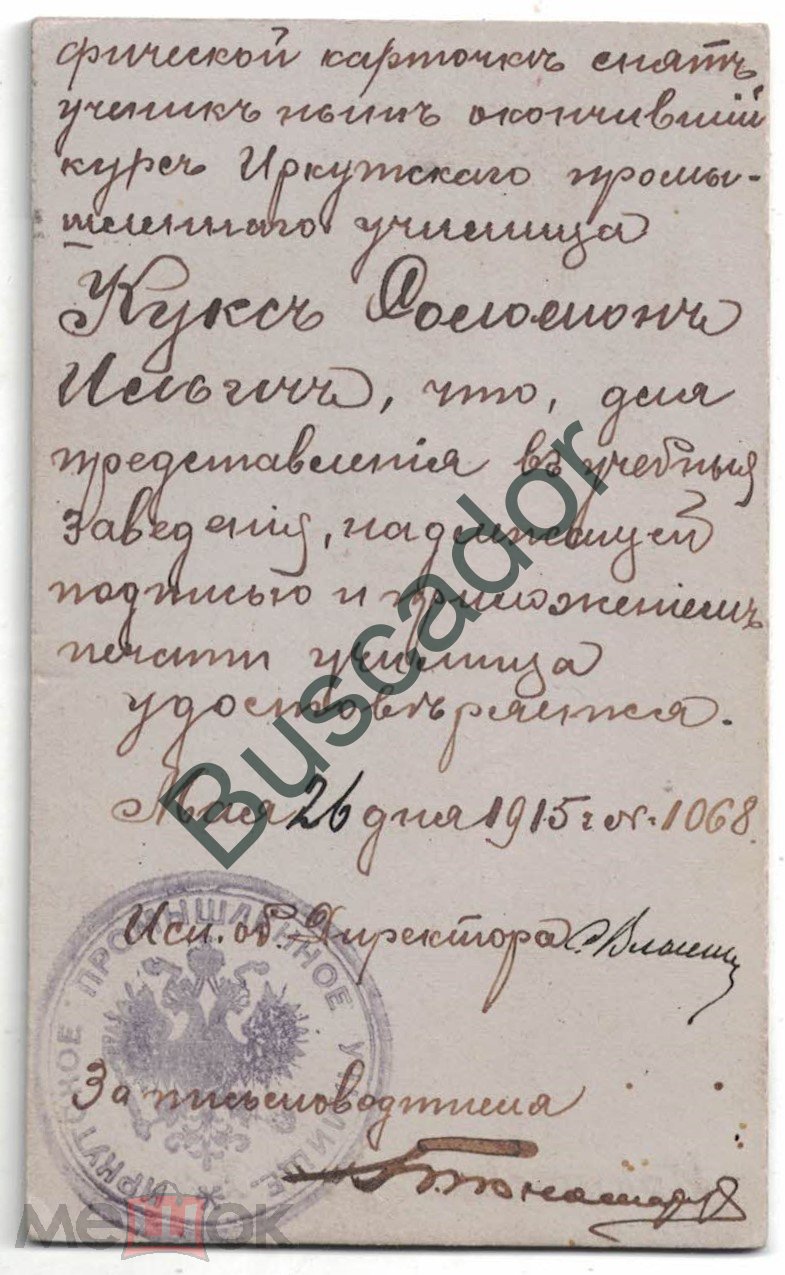 фической карточкѣ снятъ
ученикъ нынѣ окончившій
курсъ Иркутскаго промы-
шленнаго училища
Куксъ Соломонъ
Ильичъ, что, для
представленія въ учебныя
заведенія, надлежащей
подписью и приложеніемъ
печати училища
удостовѣряется.
Мая 26 дня 1915 г. №. 1068.
Исп. об. Директора
За письмоводителя
ИРКУТСКОЕ ПРОМЫШЛЕННОЕ УЧИЛИЩЕ
Buscador
мешок